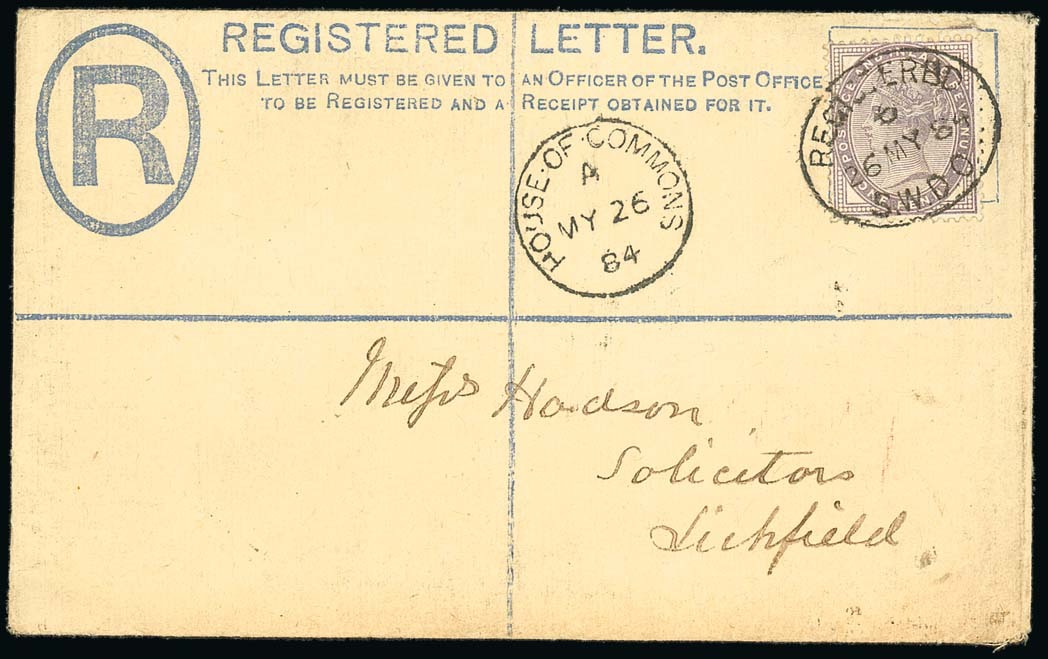 REGISTERED LETTER.
THIS LETTER MUST BE GIVEN TO AN OFFICER OF THE POST OFFICE
TO BE REGISTERED AND A RECEIPT OBTAINED FOR IT.
R
HOUSE·OF·COMMONS
A
MY 26
84
REGISTERED
MY
S.W.D.O
Messrs Hodson
Solicitors
Lichfield